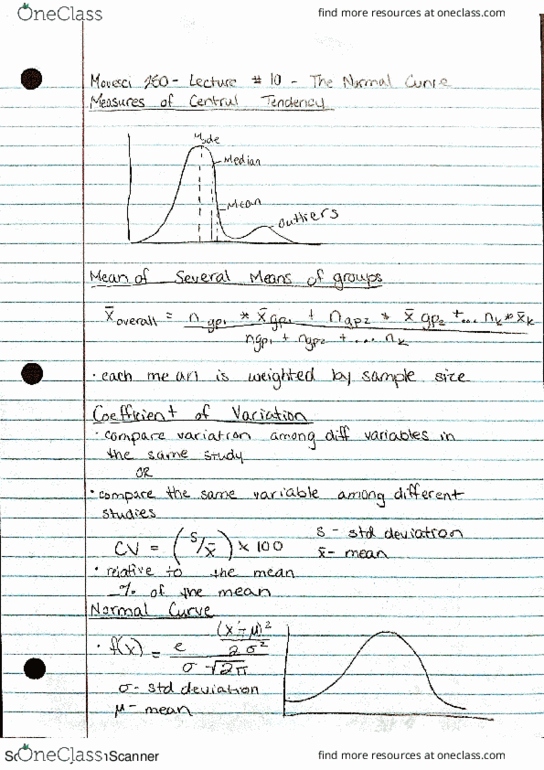 OneClass
find more resources at oneclass.com
Movesci 260 - Lecture # 10 - The Normal Curve
Measures of Central Tendency
Mode
Median
Mean
outliers
Mean of Several Means of groups
x̄overall = n gp1 * x̄ gp1 + n gp2 * x̄ gp2 +... nk * x̄k
ngp1 + ngp2 + ... nk
· each mean is weighted by sample size
Coefficient of Variation
· compare variation among diff variables in
the same study
OR
· compare the same variable among different
studies
CV = (s/x̄) × 100
s - std deviation
x̄ - mean
· relative to the mean
% of the mean
Normal Curve
· f(x) = e (x - μ)²
2σ²
σ √2π
σ - std deviation
μ - mean
OneClass
Scanner
find more resources at oneclass.com